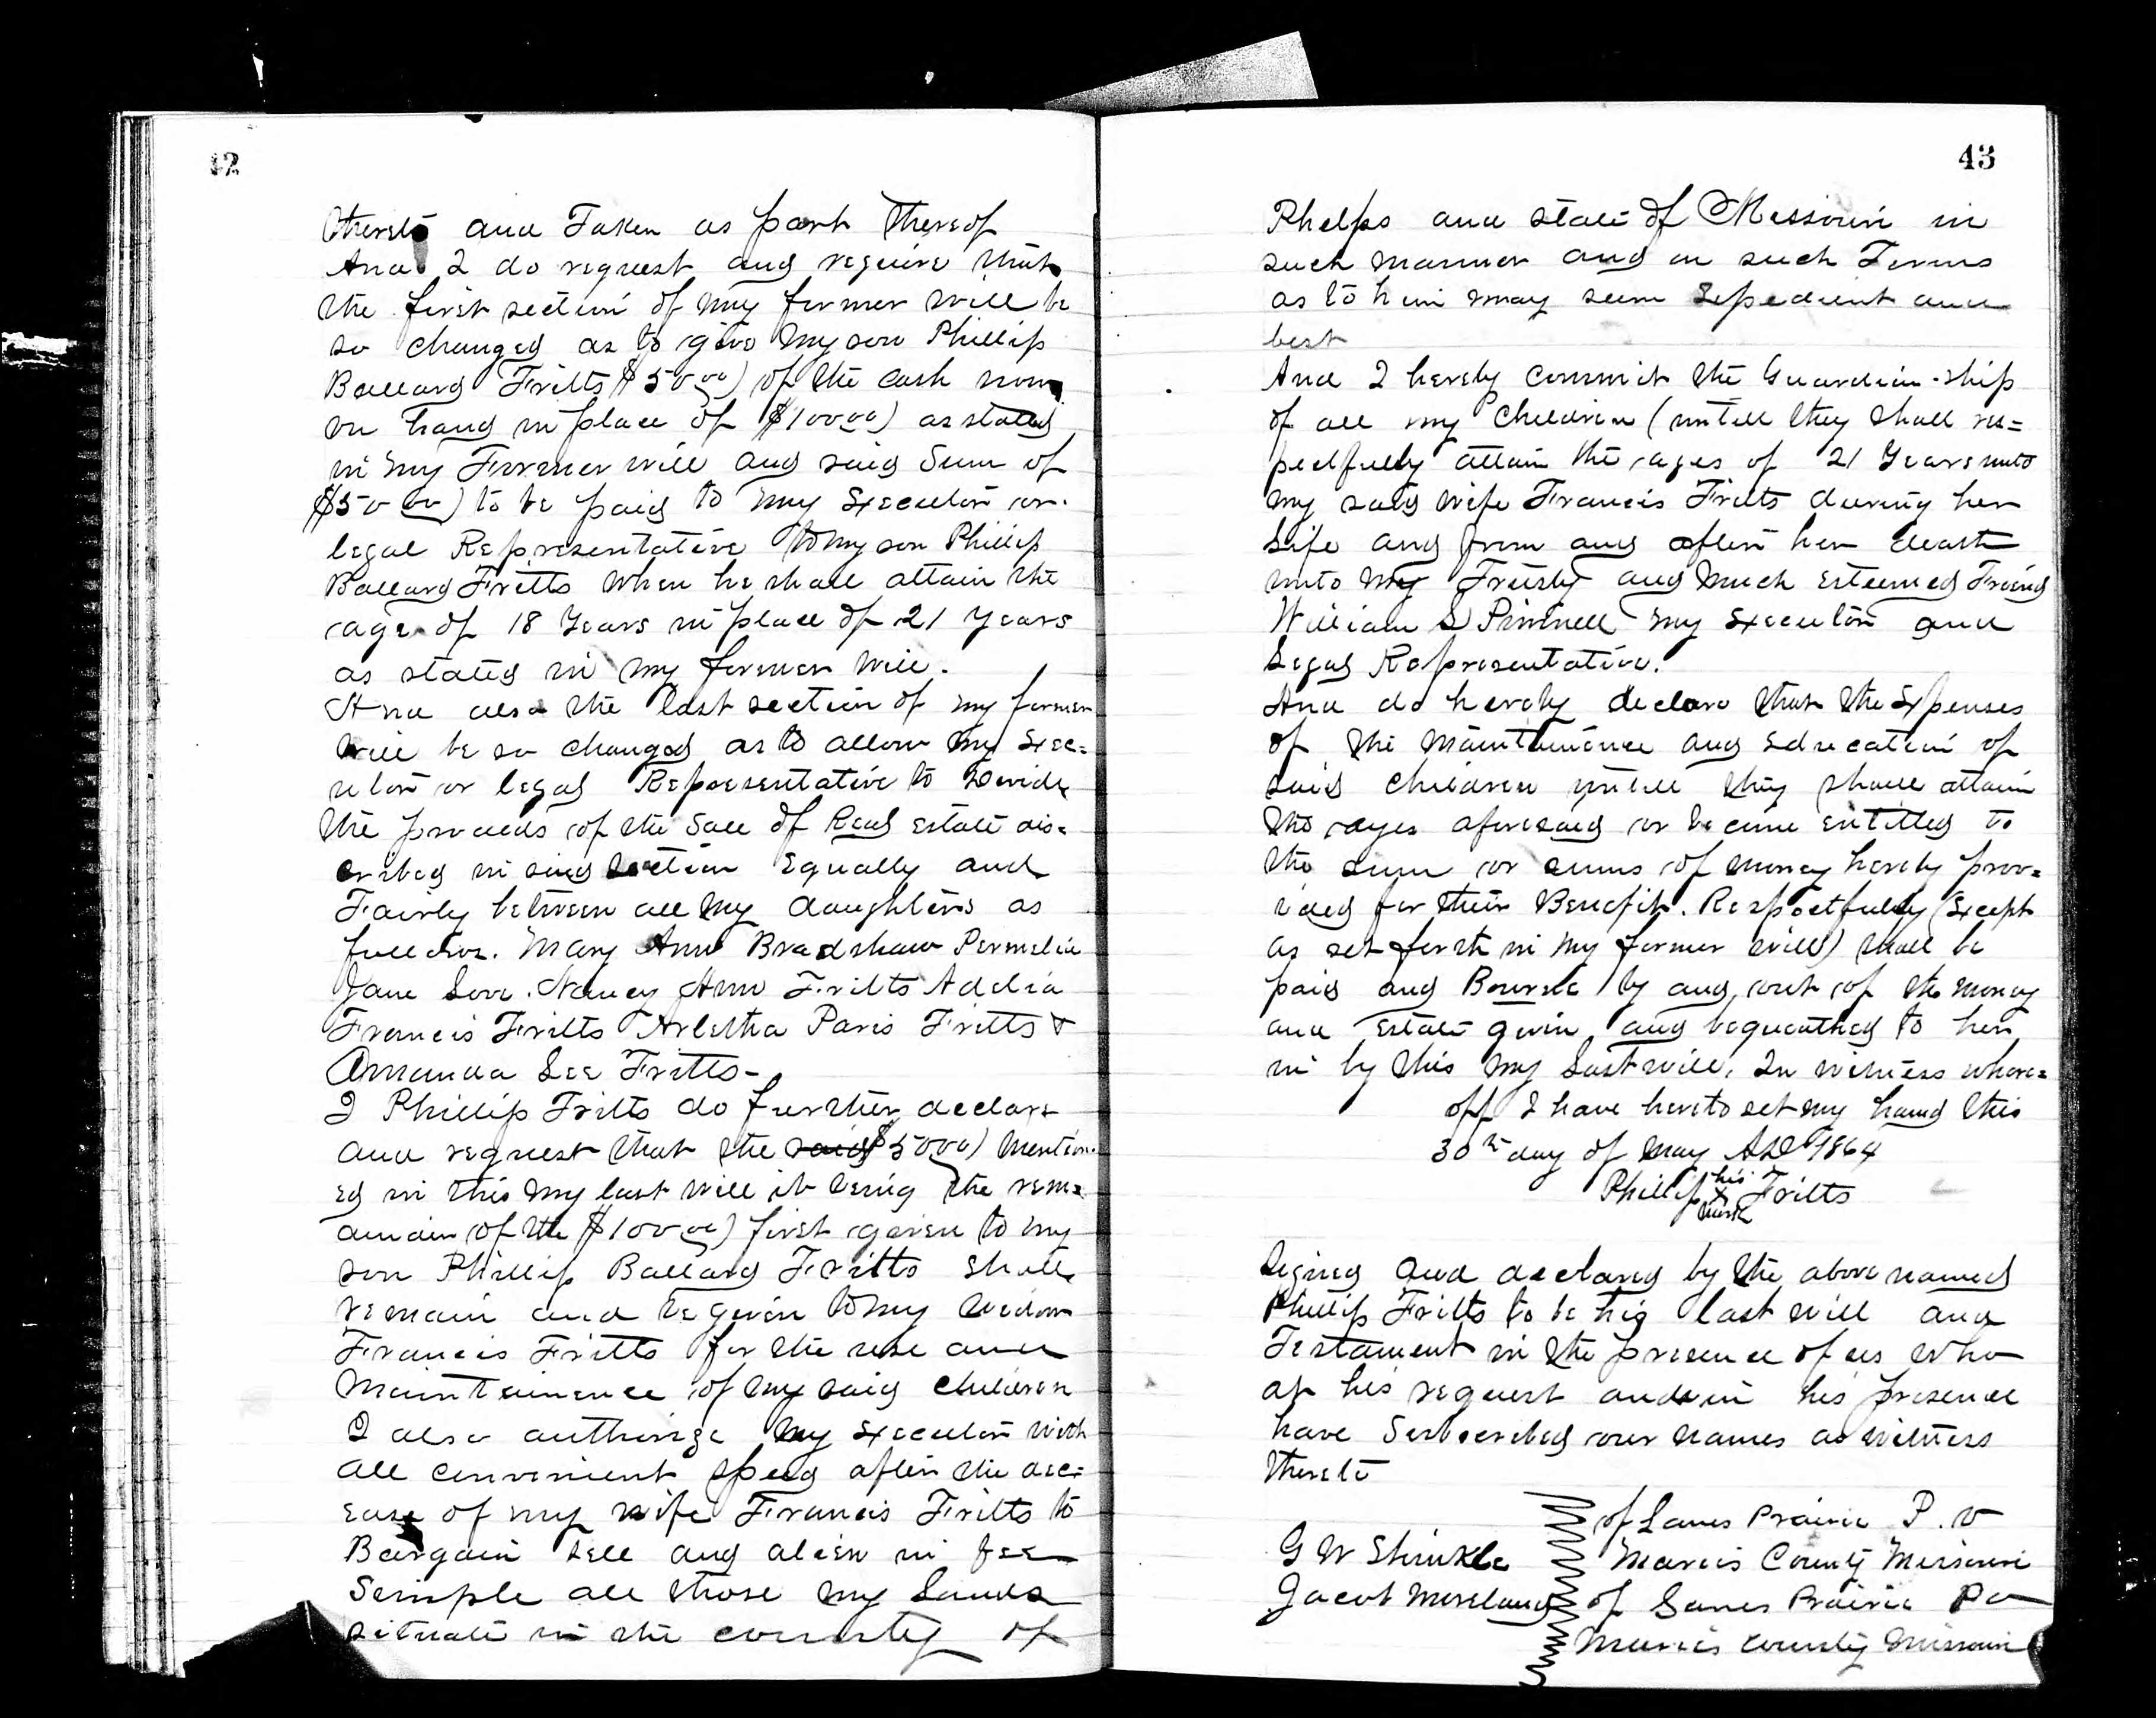 42
thereto and Taken as part thereof
And I do request and require that
the first section of my former will be
so changed as to give my son Phillip
Ballard Fritts $50 00) of the cash now
on hand in place of $100 00) as stated
in my Former will and said Sum of
$50 00) to be paid to my Executor or
legal Representative to my son Phillip
Ballard Fritts when he shall attain the
age of 18 Years in place of 21 years
as stated in my former will.
And also the last section of my former
will be so changed as to allow my Exec=
utor or legal Representative to Devide
the proceeds of the Sale of Real Estate des=
cribed in said section Equally and
Fairly between all my daughters as
follows. Mary Ann Bradshaw Permelia
Jane Love. Nancy Ann Fritts Addia
Francis Fritts Arletha Paris Fritts &
Amanda Lee Fritts-
I Phillip Fritts do further declare
and request that the said $50 00) mention
ed in this my last will it being the rem=
ainder of the $100 00) first given to my
son Phillip Ballard Fritts shall
remain and be given to my widow
Francis Fritts for the use and
Maintainence of my said children
I also authorize my Executor with
all convenient speed after the dec=
ease of my wife Francis Fritts to
Bargain sell and alien in fee
Simple all those my Lands
situate in the county of
43
Phelps and state of Missouri in
such manner and on such Terms
as to him may seem Expedient and
best
And I hereby commit the Guardian-ship
of all my children (untill they shall res=
pectfully attain the ages of 21 Years unto
my said wife Francis Fritts during her
Life and from and after her death
unto my Trusty and much esteemed Friend
William S Pinnell my Executor and
Legal Representative.
And do hereby declare that the Expenses
of the Maintainence and Education of
said children untill they shall attain
the ages aforesaid or become entitled to
the sum or sums of money hereby prov=
ided for their Benefit. Respectfully (Except
as set forth in my former will) shall be
paid and Bourne by and out of the money
and Estate given and bequeathed to her
in by this my Last will. In witness where=
off I have hereto set my hand this
30th day of May AD 1864
Phillip his X mark Fritts
Signed and declared by the above named
Phillip Fritts to be his last will and
Testament in the presence of us who
at his request and in his presence
have Subscribed our names as witness
thereto
of Lanes Prairie P.O
G W Shinkle Maries County Missouri
Jacob Moreland of Lanes Prairie Po
Maries County Missouri